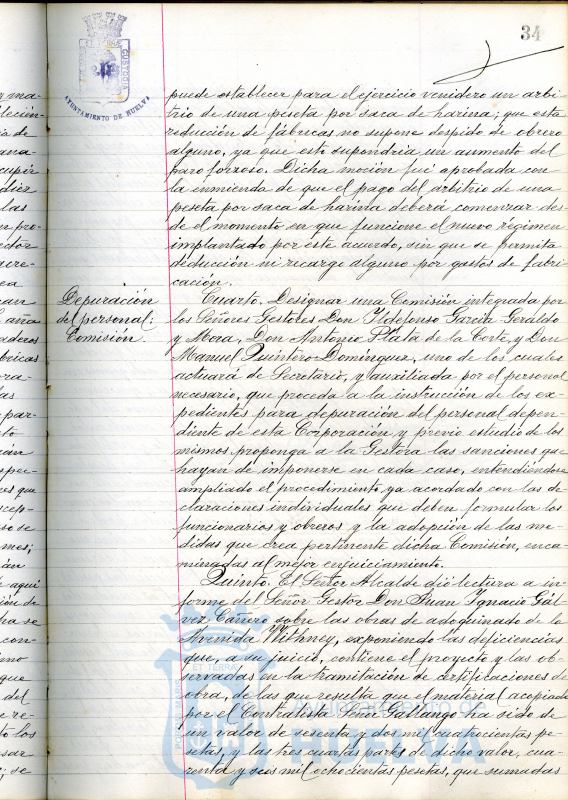 34
AYUNTAMIENTO DE HUELVA
puede establecer para el ejercicio venidero un arbi-
trio de una peseta por saca de harina; que esta
reducción de fábricas no supone despido de obrero
alguno, ya que esto supondría un aumento del
paro forzoso. Dicha moción fué aprobada con
la enmienda de que el pago del arbitrio de una
peseta por saca de harina deberá comenzar des-
de el momento en que funcione el nuevo régimen
implantado por este acuerdo, sin que se permita
deducción ni recargo alguno por gastos de fabri-
cación.
Depuración
del personal:
Comisión.
Cuarto. Designar una Comisión integrada por
los Señores Gestores Don Ildefonso García-Geraldo
y Mora, Don Antonio Plata de la Corte, y Don
Manuel Quintero Domínguez, uno de los cuales
actuará de Secretario, y auxiliada por el personal
necesario, que proceda a la instrucción de los ex-
pedientes para depuración del personal depen-
diente de esta Corporación y previo estudio de los
mismos proponga a la Gestora las sanciones que
hayan de imponerse en cada caso, entendiéndose
ampliado el procedimiento ya acordado con las de-
claraciones individuales que deben formular los
funcionarios y obreros y la adopción de las me-
didas que crea pertinente dicha Comisión, enca-
minadas al mejor enjuiciamiento.
Quinto. El Señor Alcalde dió lectura a in-
forme del Señor Gestor Don Juan Ignacio Gál-
vez Cañero sobre las obras de adoquinado de la
Avenida Withney, exponiendo las deficiencias
que, a su juicio, contiene el proyecto y las ob-
servadas en la tramitación de certificaciones de
obra, de las que resulta que el material acopiado
por el Contratista Señor Gallango ha sido de
un valor de sesenta y dos mil cuatrocientas pe-
setas, y las tres cuartas partes de dicho valor, cua-
renta y seis mil ochocientas pesetas, que sumadas
Ayuntamiento de
HUELVA